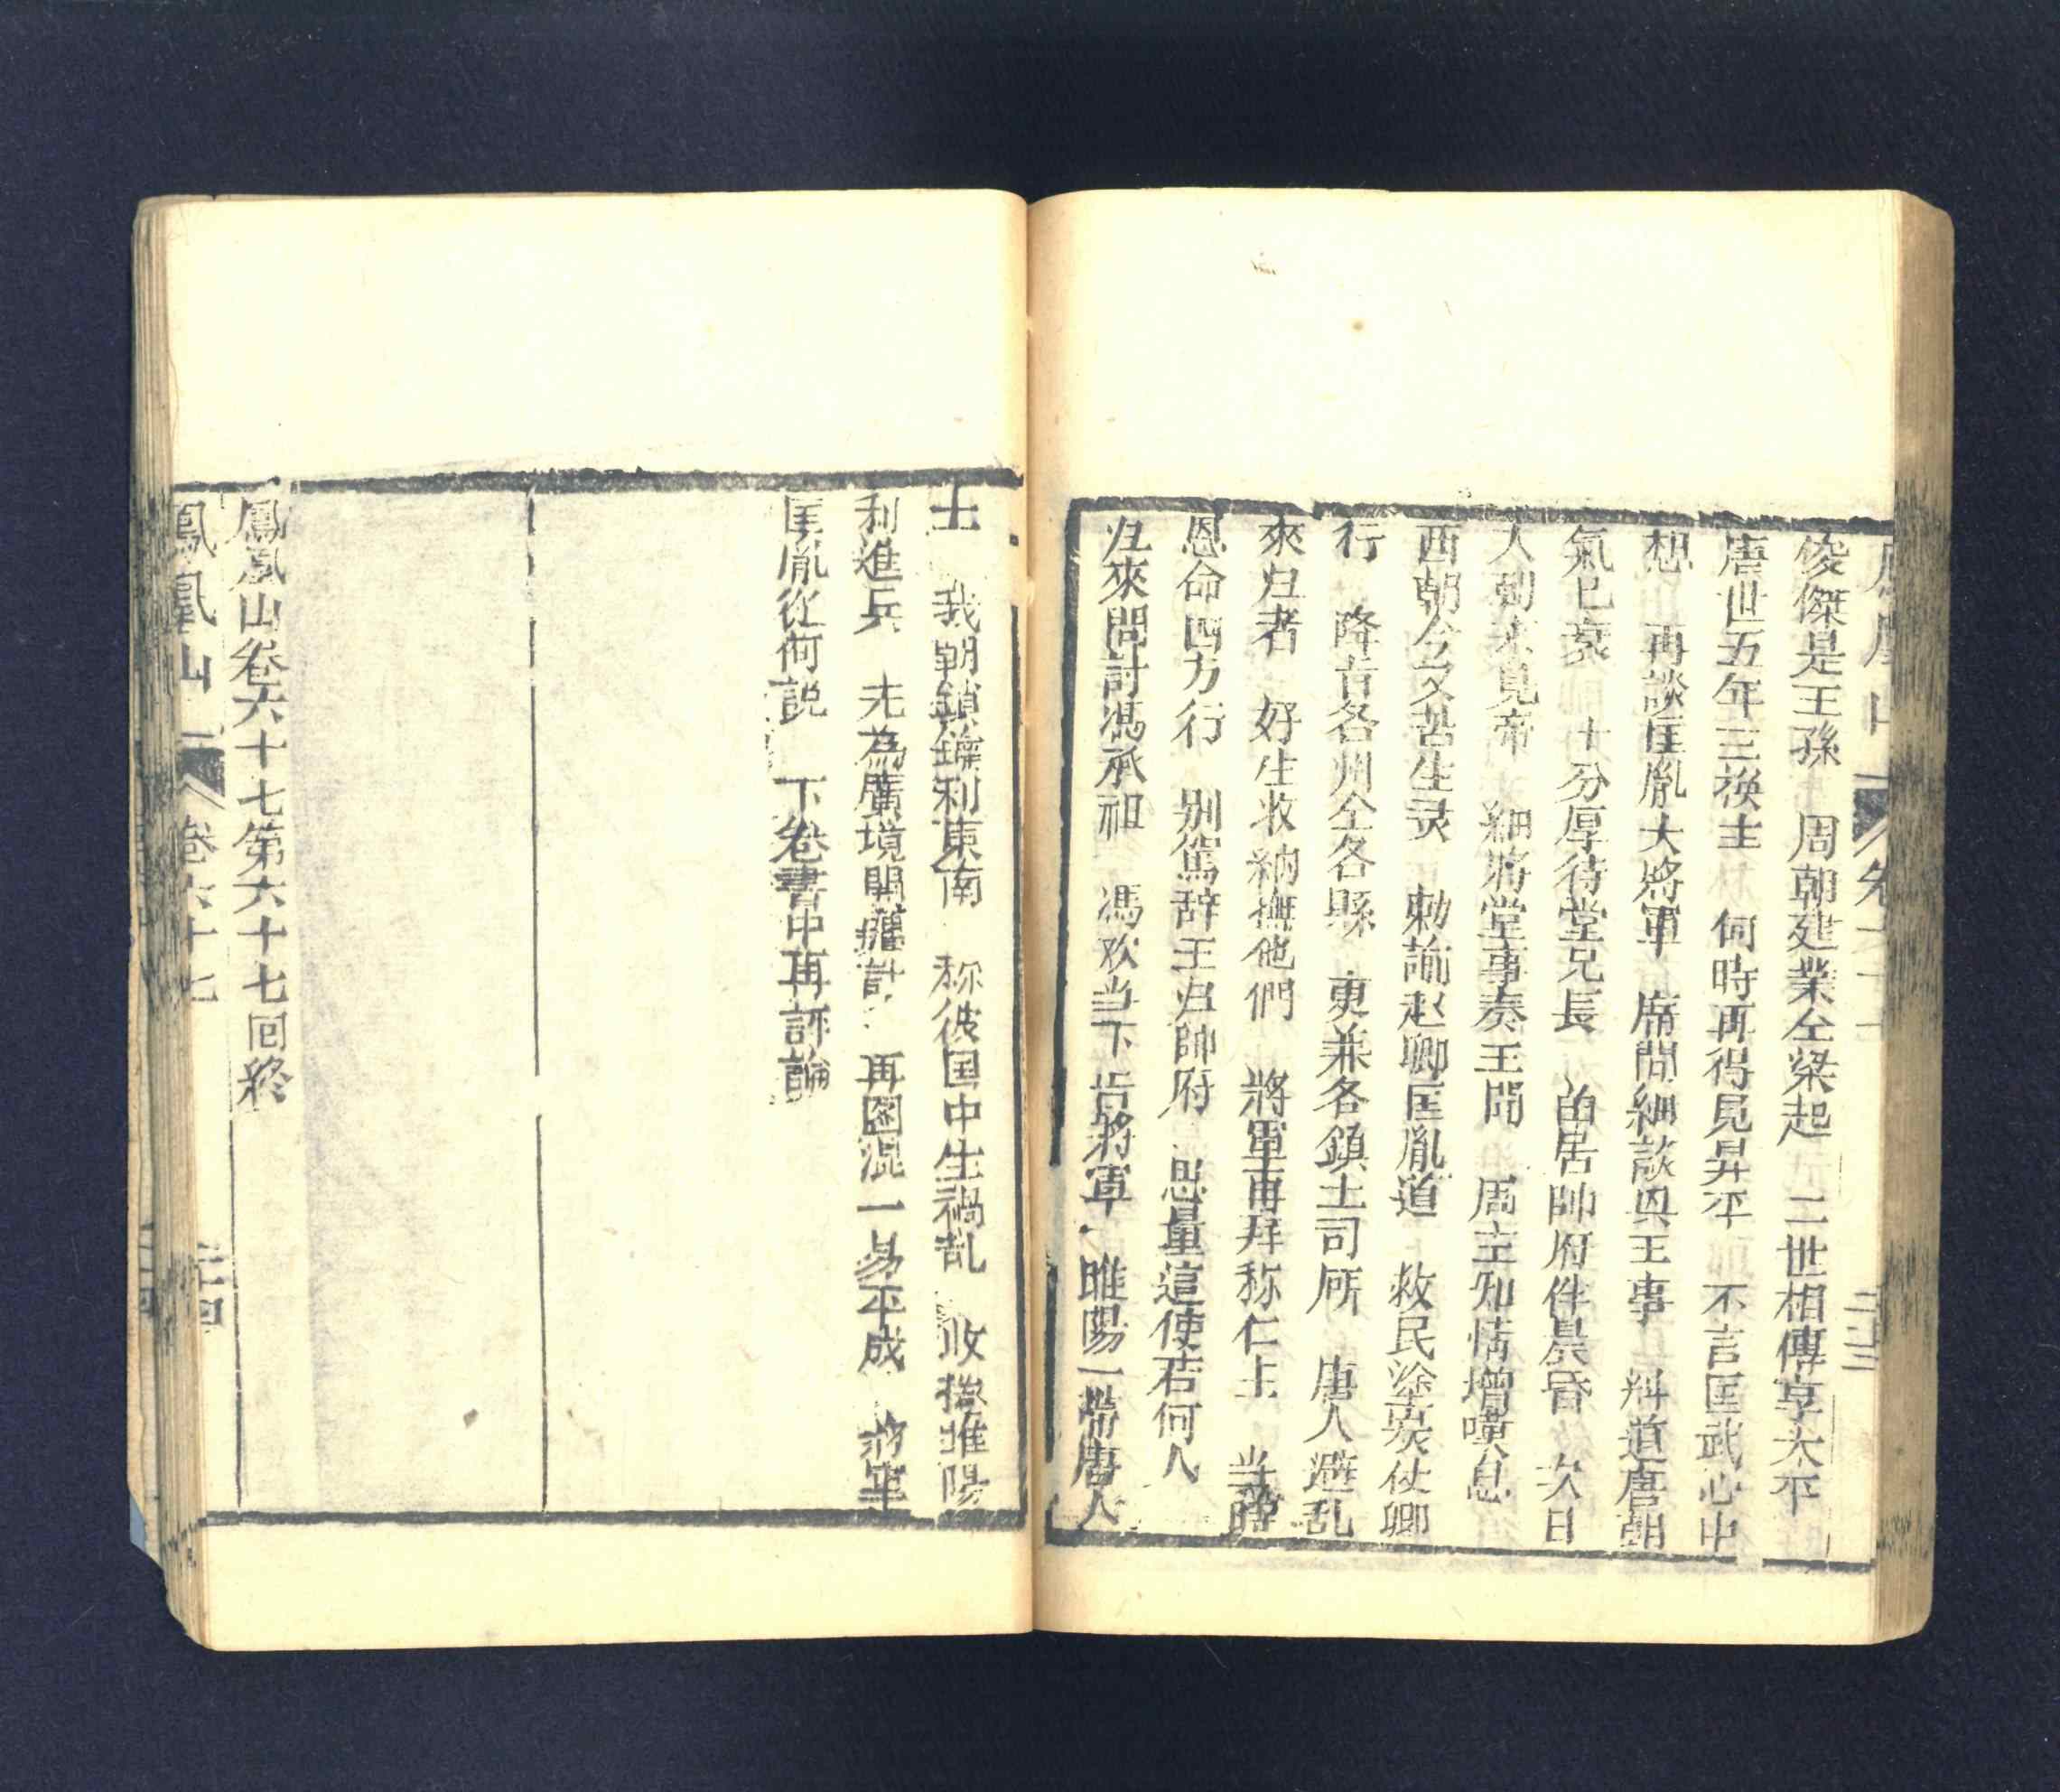 俊傑是王孫　周朝建業仝梁起　二世相傳享太平
唐世五年三换主　何時再得見昇平　不言匡武心中
想　再談匡胤大將軍　席問細談與王事　料道唐朝
氣已衰　十分厚待堂兄長　留居帥府伴晨昏　次日
人朝來見帝　細將堂事奏王聞　周主知情增嘆息
西朝今又苦生灵　勅諭赵卿匡胤道　救民塗炭仗卿
行　降旨各州仝各縣　更兼各鎮土司所　唐人避乱
來归者　好生收納撫他們　將軍再拜称仁主　当時
恩命四方行　别駕辞王归帥府　思量這使若何人
归來問討馮承祖　馮欢当下告將軍　睢陽一帶唐人
士　我朝鎖鑰利東南　称彼国中生禍乱　收拾淮陽
利進兵　先為廣境開疆計　再图混一易平成　將軍
匡胤從何説　下卷書中再評論
鳳凰山卷六十七第六十七回終
鳳凰山　卷六十七　二十四